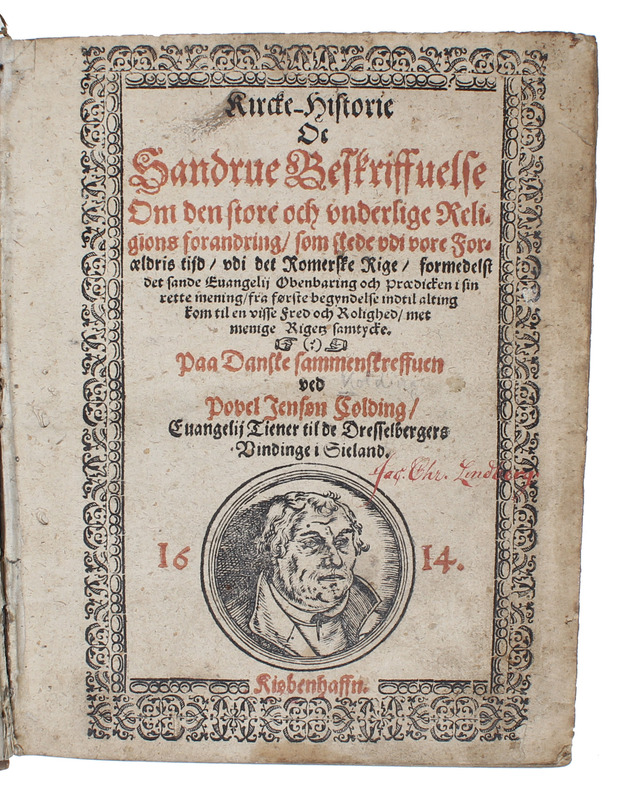 Kircke-Historie
Oc
Sandrue Beskriffuelse
Om den store och vnderlige Reli-
gions forandring/ som skede vdi vore For-
ældris tijd/ vdi det Romerske Rige/ formedelst
det sande Euangelij Obenbaring och Prædicken i sin
rette mening/ fra første begyndelse indtil alting
kom til en visse Fred och Rolighed/ met
menige Rigetz samtycke.
(:)
Paa Danske sammenskreffuen
ved
Povel Jensøn Colding/
Euangelij Tiener til de Dresselbergers
Vindinge i Sieland.
Jac. Chr. Lindberg
16 14.
Kiøbenhaffn.